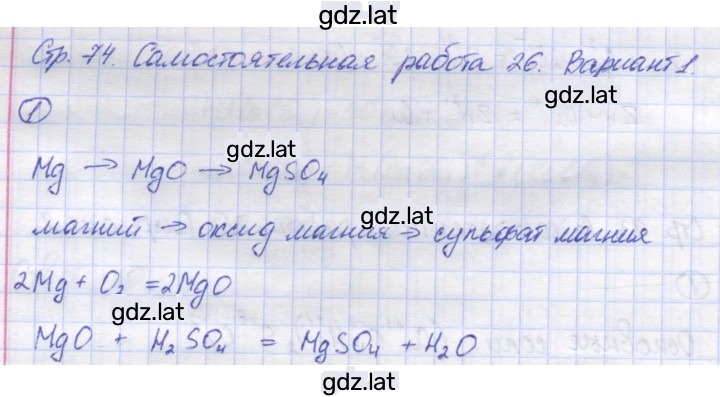 gdz.lat
Стр. 74. Самостоятельная работа 26. Вариант 1.
gdz.lat
1
gdz.lat
Mg → MgO → MgSO4
gdz.lat
магний → оксид магния → сульфат магния
2Mg + O2 = 2MgO
gdz.lat
MgO + H2SO4 = MgSO4 + H2O
gdz.lat